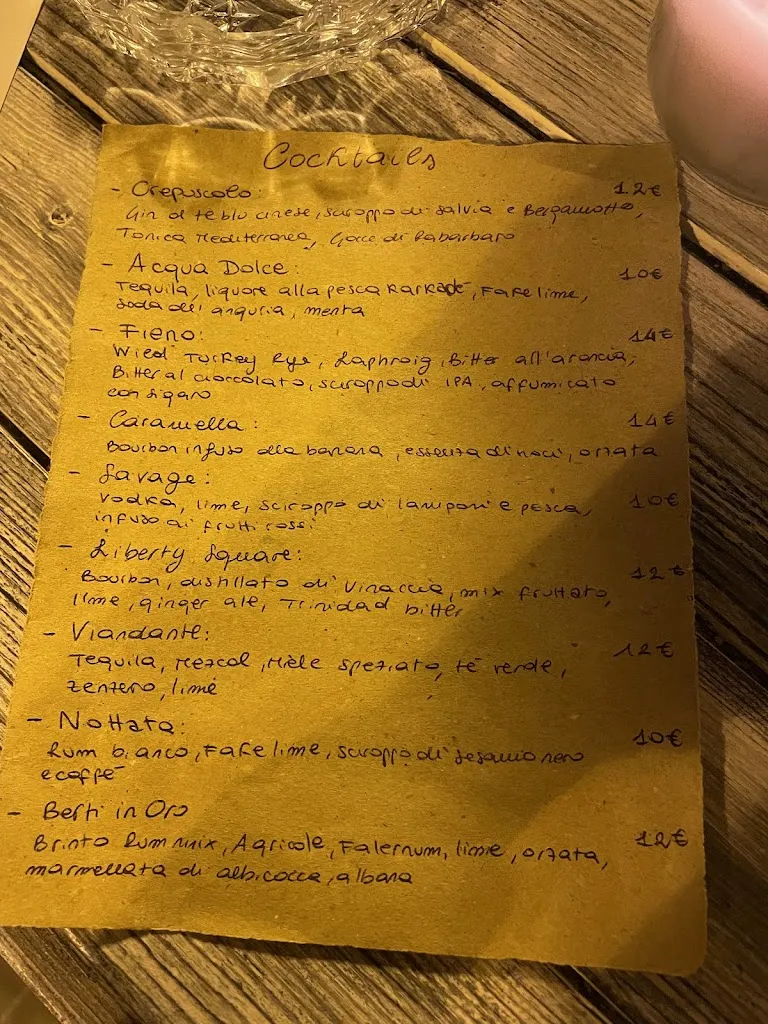 Cocktails
- Crepuscolo: 12€
Gin al te blu cinese, sciroppo di salvia e Bergamotto,
Tonica Mediterranea, Gocce di Rabarbaro
- Acqua Dolce: 10€
Tequila, liquore alla pesca Karkadè, Fake lime,
soda all'anguria, menta
- Fieno: 14€
Wied Turkey Rye, Laphroig, Bitter all'arancia,
Bitter al cioccolato, sciroppo di IPA, affumicato
con sigaro
- Caramella: 14€
Bourbon infuso alla banana, essenza di noci, orzata
- Savage:
Vodka, lime, sciroppo di lamponi e pesca, 10€
infuso ai frutti rossi
- Liberty Square:
Bourbon, distillato di Vinaccia, mix fruttato, 12€
lime, ginger ale, Trinidad bitter
- Viandante: 12€
Tequila, Mezcal, Miele speziato, te verde,
zenzero, lime
- Nottata: 10€
Rum bianco, Fake lime, sciroppo di sesamo nero
e caffè
- Berti in Oro
Rum mix, Agricole, Falernum, lime, orzata, 12€
marmellata di albicocca, albana